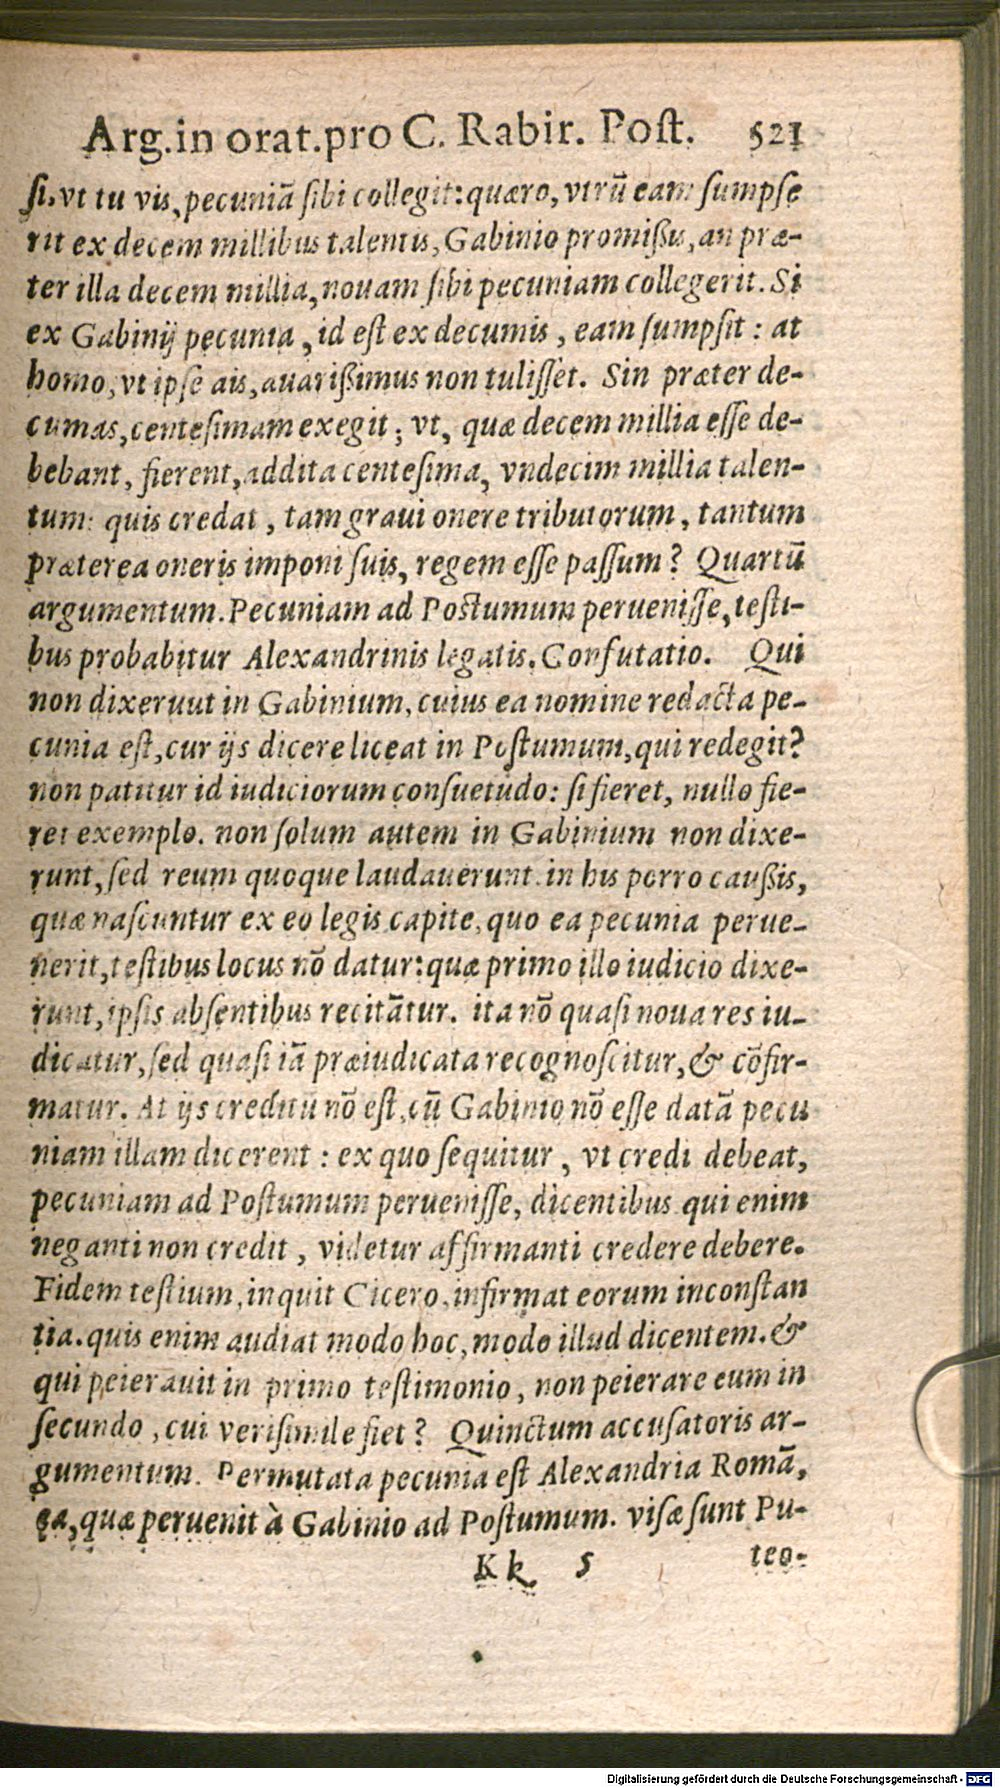 Arg. in orat. pro C. Rabir. Post. 521
si, vt tu vis, pecuniā sibi collegit: quæro, vtrū eam sumpse
rit ex decem millibus talentis, Gabinio promißis, an præ-
ter illa decem millia, nouam sibi pecuniam collegerit. Si
ex Gabinij pecunia, id est ex decumis, eam sumpsit: at
homo, vt ipse ais, auarißimus non tulisset. Sin præter de-
cumas, centesimam exegit; vt, quæ decem millia esse de-
bebant, fierent, addita centesima, vndecim millia talen-
tum: quis credat, tam graui onere tributorum, tantum
præterea oneris imponi suis, regem esse passum? Quartū
argumentum. Pecuniam ad Postumum peruenisse, testi-
bus probabitur Alexandrinis legatis. Confutatio. Qui
non dixeruut in Gabinium, cuius ea nomine redacta pe-
cunia est, cur ijs dicere liceat in Postumum, qui redegit?
non patitur id iudiciorum consuetudo: si fieret, nullo fie-
ret exemplo. non solum autem in Gabinium non dixe-
runt, sed reum quoque laudauerunt. in his porro caußis,
quæ nascuntur ex eo legis capite, quo ea pecunia perue-
nerit, testibus locus nō datur: quæ primo illo iudicio dixe-
runt, ipsis absentibus recitātur. ita nō quasi noua res iu-
dicatur, sed quasi iā præiudicata recognoscitur, & cōfir-
matur. At ijs creditū nō est, cū Gabinio nō esse datā pecu
niam illam dicerent: ex quo sequitur, vt credi debeat,
pecuniam ad Postumum peruenisse, dicentibus. qui enim
neganti non credit, videtur affirmanti credere debere.
Fidem testium, inquit Cicero, infirmat eorum inconstan
tia. quis enim audiat modo hoc, modo illud dicentem. &
qui peierauit in primo testimonio, non peierare eum in
secundo, cui verisimile fiet? Quinctum accusatoris ar-
gumentum. Permutata pecunia est Alexandria Romā,
ea, quæ peruenit à Gabinio ad Postumum. visæ sunt Pu-
Kk 5 teo-
Digitalisierung gefördert durch die Deutsche Forschungsgemeinschaft - DFG